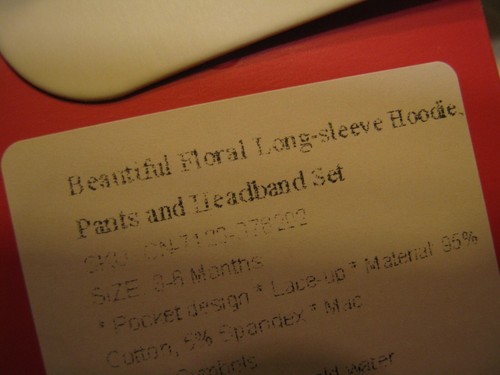 Beautiful Floral Long-sleeve Hoodie,
Pants and Headband Set
SKU:
SIZE: Months
* Pocket design * Lace-up * Material 95%
Cotton, 5% Spandex * Mac
Symbols
water